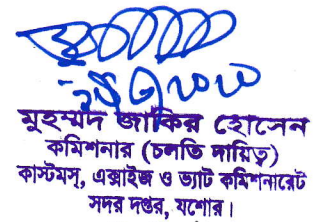 মুহম্মদ জাকির হোসেন
কমিশনার (চলতি দায়িত্ব)
কাস্টমস, এক্সাইজ ও ভ্যাট কমিশনারেট
সদর দপ্তর, যশোর।